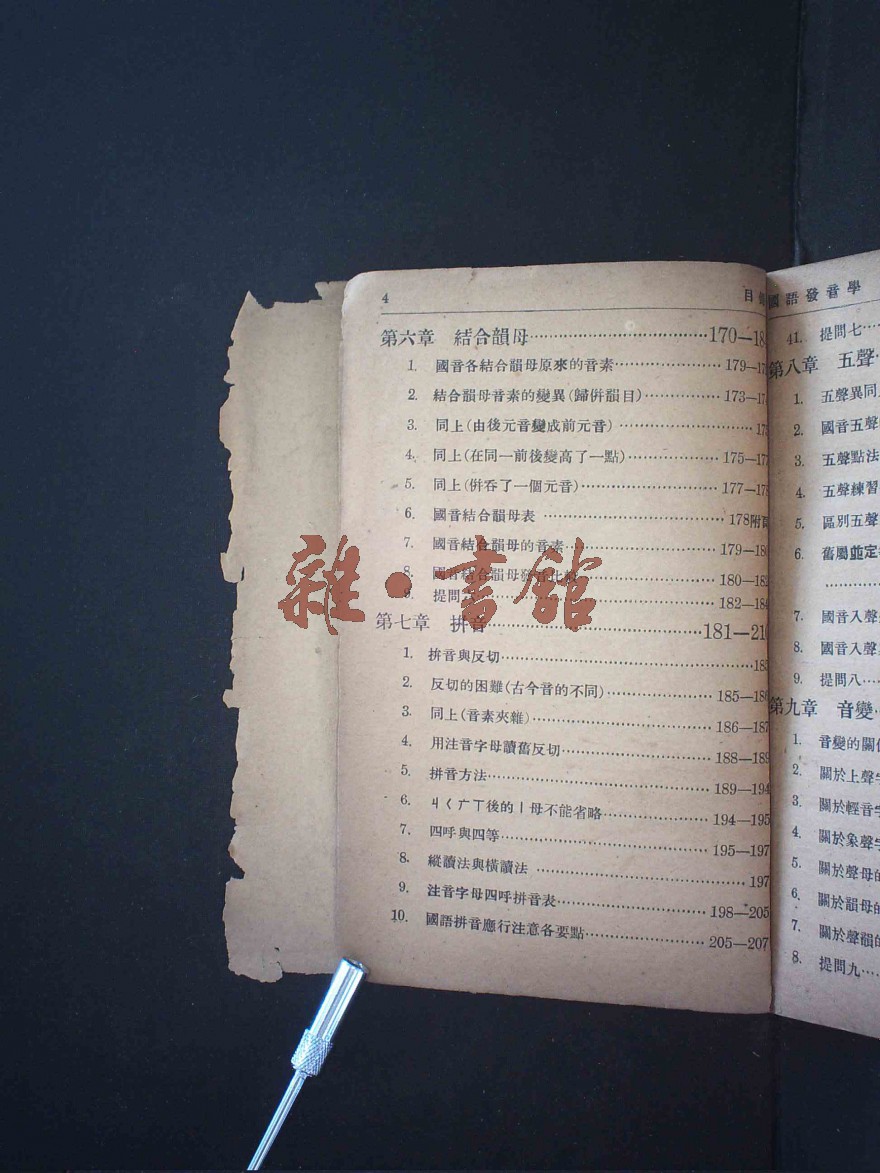 4 目錄
第六章 結合韻母……170—18
1. 國音各結合韻母原來的音素……179—17
2. 結合韻母音素的變異(歸倂韻目)……173—17
3. 同上(由後元音變成前元音)……17
4. 同上(在同一前後變高了一點)……175—17
5. 同上(倂吞了一個元音)……177—17
6. 國音結合韻母表……178附頁
7. 國音結合韻母的音素……179—180
8. 國音結合韻母發音比較……180—182
9. 提問六……182—184
第七章 拼音……181—210
1. 拚音與反切……185
2. 反切的困難(古今音的不同)……185—186
3. 同上(音素夾雜)……186—187
4. 用注音字母讀舊反切……188—189
5. 拼音方法……189—194
6. ㄐㄑㄏㄒ後的丨母不能省略……194—195
7. 四呼與四等……195—197
8. 縱讀法與橫讀法……197
9. 注音字母四呼拼音表……198—205
10. 國語拼音應行注意各要點……205—207
國語發音學
41. 提問七……
第八章 五聲……
1. 五聲異同
2. 國音五聲
3. 五聲點法
4. 五聲練習
5. 區別五聲
6. 舊屬並定
……
7. 國音入聲
8. 國音入聲
9. 提問八……
第九章 音變
1. 音變的關
2. 關於上聲字
3. 關於輕音字
4. 關於象聲字
5. 關於聲母的
6. 關於韻母的
7. 關於聲韻的
8. 提問九……
雜·書館